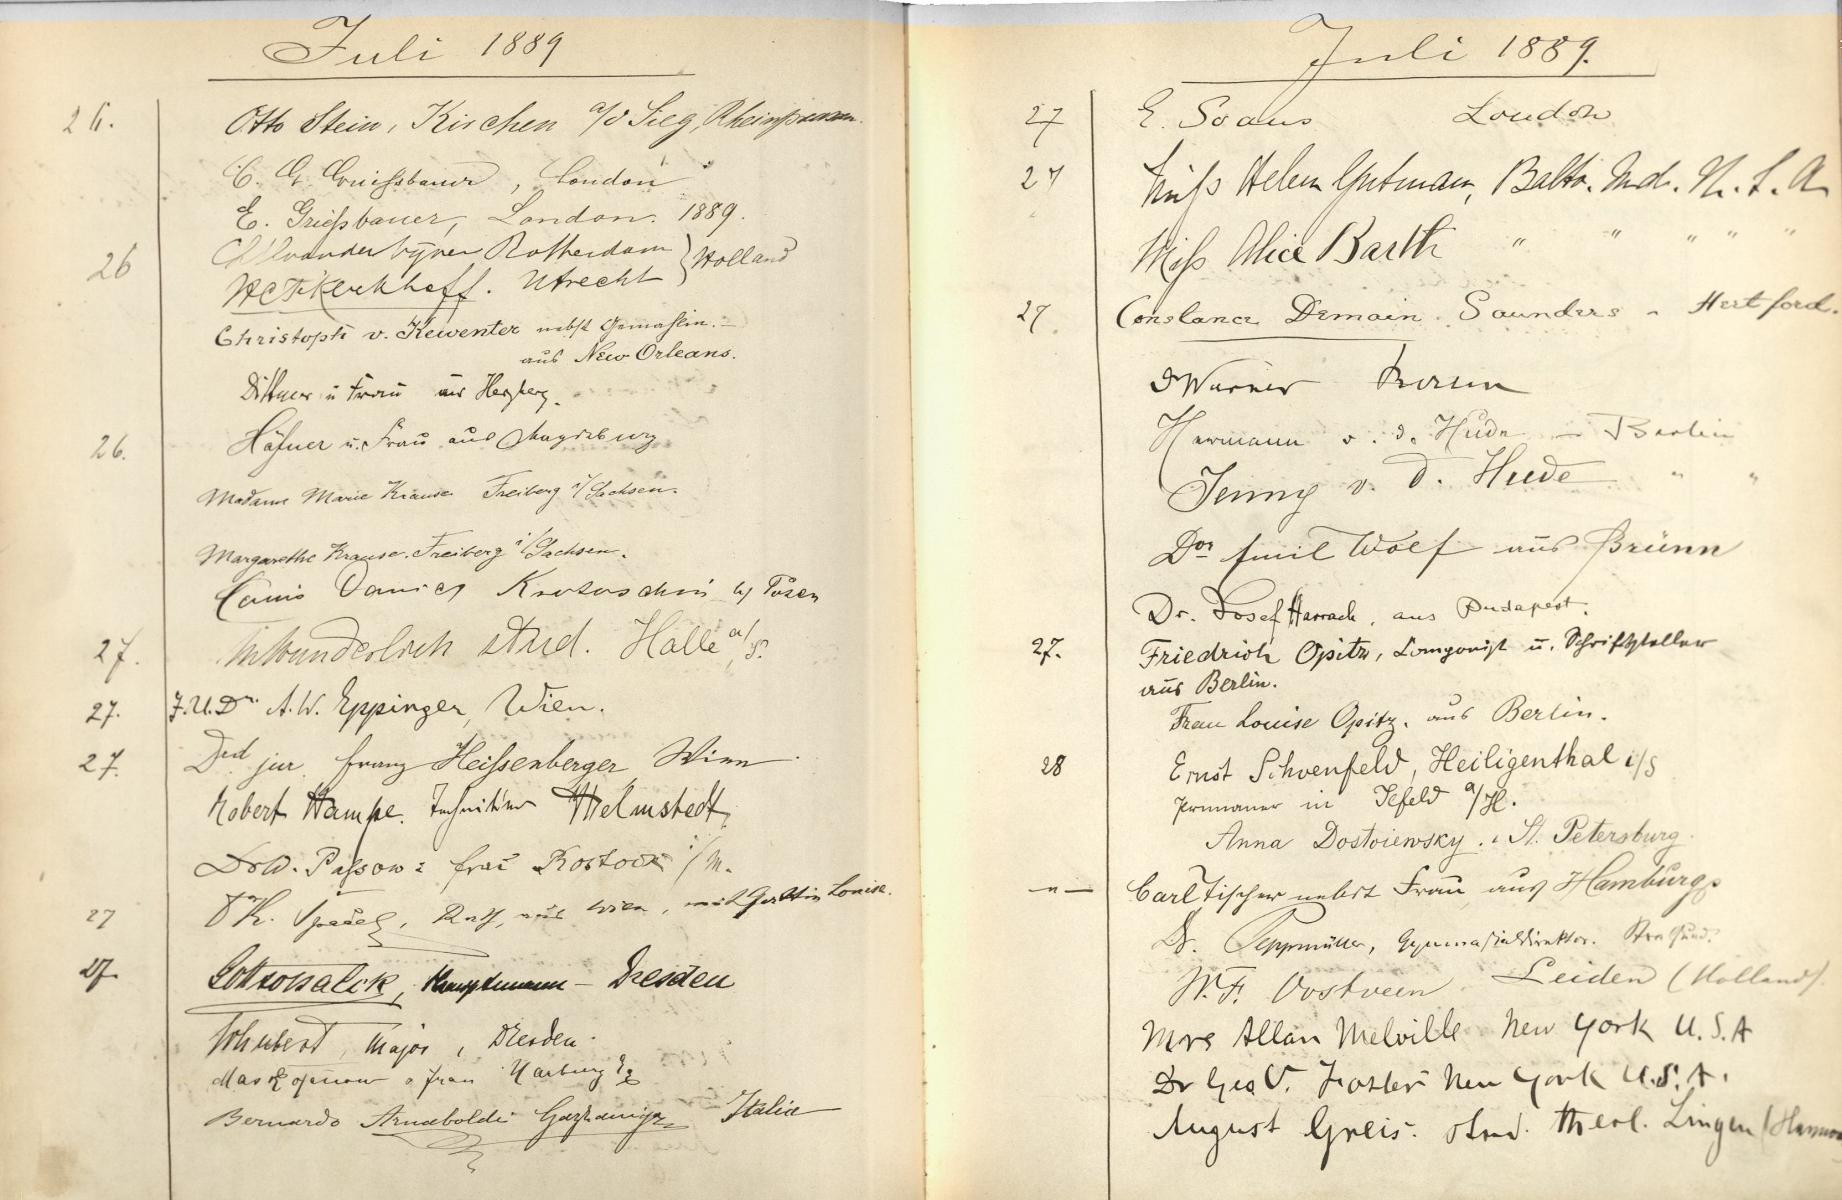 Juli 1889
26. Otto Stein, Kirchen a/d Sieg, Rheinpreussen.
C. G. Griessbauer, London
E. Grießbauer, London. 1889.
26 Rotterdam } Holland
Kerkhoff. Utrecht
Christoph v. Kewenter nebst Gemahlin.
aus New Orleans.
Dittmer u Frau aus Herzberg.
26. Häfner u. Frau aus Magdeburg
Madame Marie Krause Freiberg i/Sachsen.
Margarethe Krause. Freiberg i/Sachsen.
Louis Daniel Krotoschin by Posen
27. Wunderlich stud. Halle a/S.
27. J.U.Dr. A.W. Eppinger, Wien.
27. jur Franz Heissenberger Wien
Robert Hampe. Techniker Helmstedt.
Passow : Frau Rostock i/M.
27 aus Wien, mit Gattin Louise.
27. Gottschalck, Hauptmann – Dresden
Schubert, Major, Dresden.
Frau Harburg
Bernardo Arnaboldi Gazzaniga Italia
Juli 1889.
27 E. Soans London
27 Miss Helen Gutman, Balto. Md. U. S. A
Miss Alice Barth " " " " "
27 Constance Demain Saunders - Hertford.
Warner
Hermann v. d. Hude – Berlin
Jenny v. d. Hude " "
Dor Emil Wolf aus Brünn
Dr. Josef Harrach, aus Budapest.
27. Friedrich Opitz, Componist u. Schriftsteller
aus Berlin.
Frau Louise Opitz. aus Berlin.
28 Ernst Schoenfeld, Heiligenthal i/S
Primaner in Ilfeld a/H.
Anna Dostoiewsky. St. Petersburg.
–"– Carl Tischer nebst Frau aus Hamburg
Dr. Peppmüller, Gymnasialdirektor. Stralsund.
W. F. Oostveen Leiden (Holland).
Mrs Allan Melville New York U.S.A
Dr Geo V. Foster New York U.S.A.
August Greis. stud. theol. Lingen (Hannov